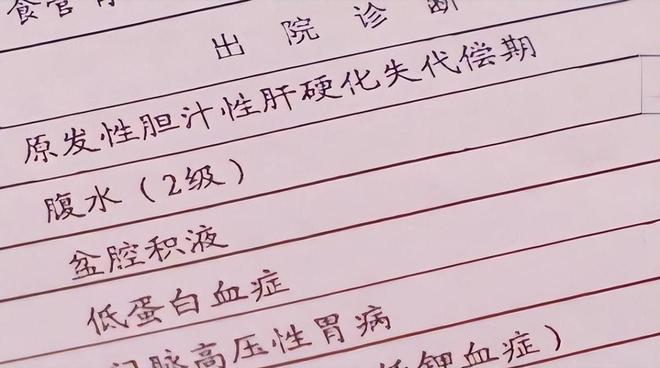 食管
出院诊断
原发性胆汁性肝硬化失代偿期
腹水（2级）
盆腔积液
低蛋白血症
门脉高压性胃病
低钾血症）